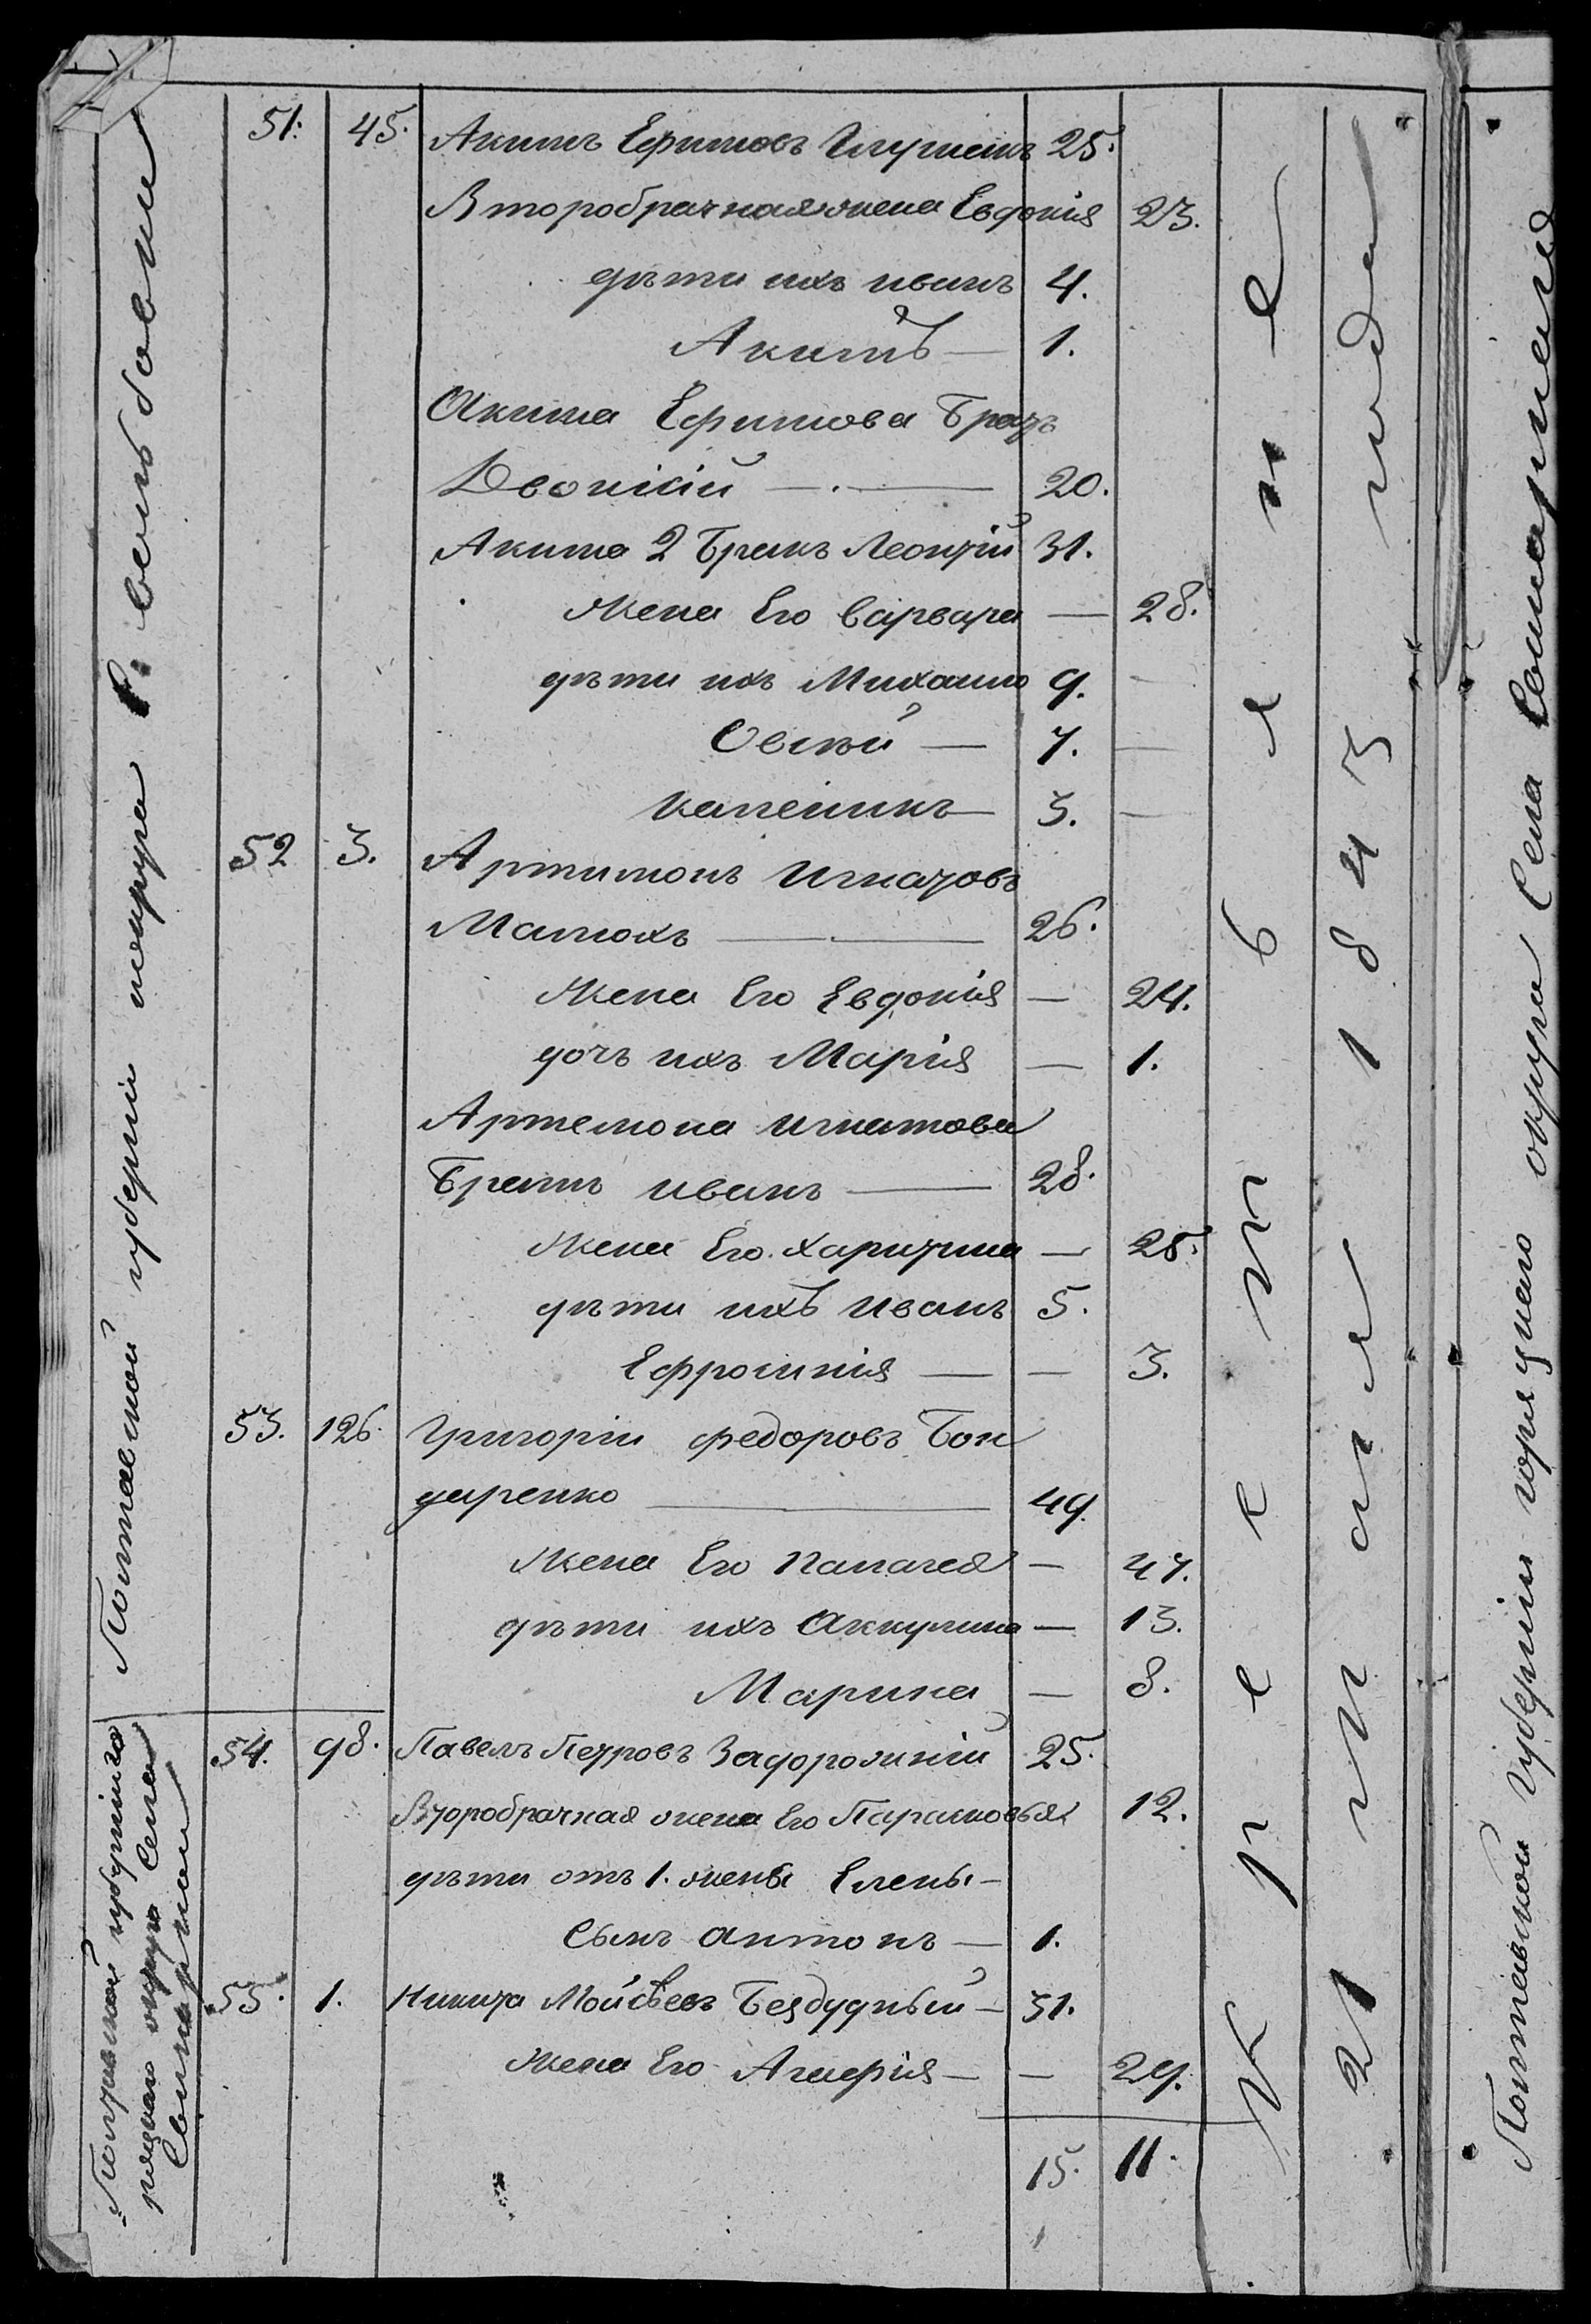 51. 45. Акимъ Ефимовъ Глущенко 25.
Второбрачная жена Евдокія 23.
дѣти ихъ иванъ 4.
Акимъ — 1.
Акима Ефимова Братъ
20.
Акима 2 Братъ Леонтій 31.
Жена Его Варвара — 28.
дѣти ихъ Михаило 9.
7.
3.
52 3. Артимонъ Игнатовъ
26.
Жена Его Евдокія — 24.
дочь ихъ Марія — 1.
Артемона Игнатова
Братъ иванъ — 28.
Жена Его Харитина — 25.
дѣти ихъ иванъ 5.
Ефросинія — — 3.
53. 126. Григорій Федоровъ Бон
даренко — 49.
Жена Его Палагея — 47.
дѣти ихъ Аккулина — 13.
Марина — 8.
54. 98. Павелъ Петровъ Задорожній 25.
Второбрачная жена Его Парасковья 12.
дѣти отъ 1. жены Елены —
Сынъ Антонъ — 1.
55. 1. Никита Мойсѣевъ Бездудный — 31.
Жена Его — — 29.
15. 11.
Полтавской губерніи
Полтавской
округа Села
Крестьяне
21 1843 года
Полтавской Губерніи округа Села